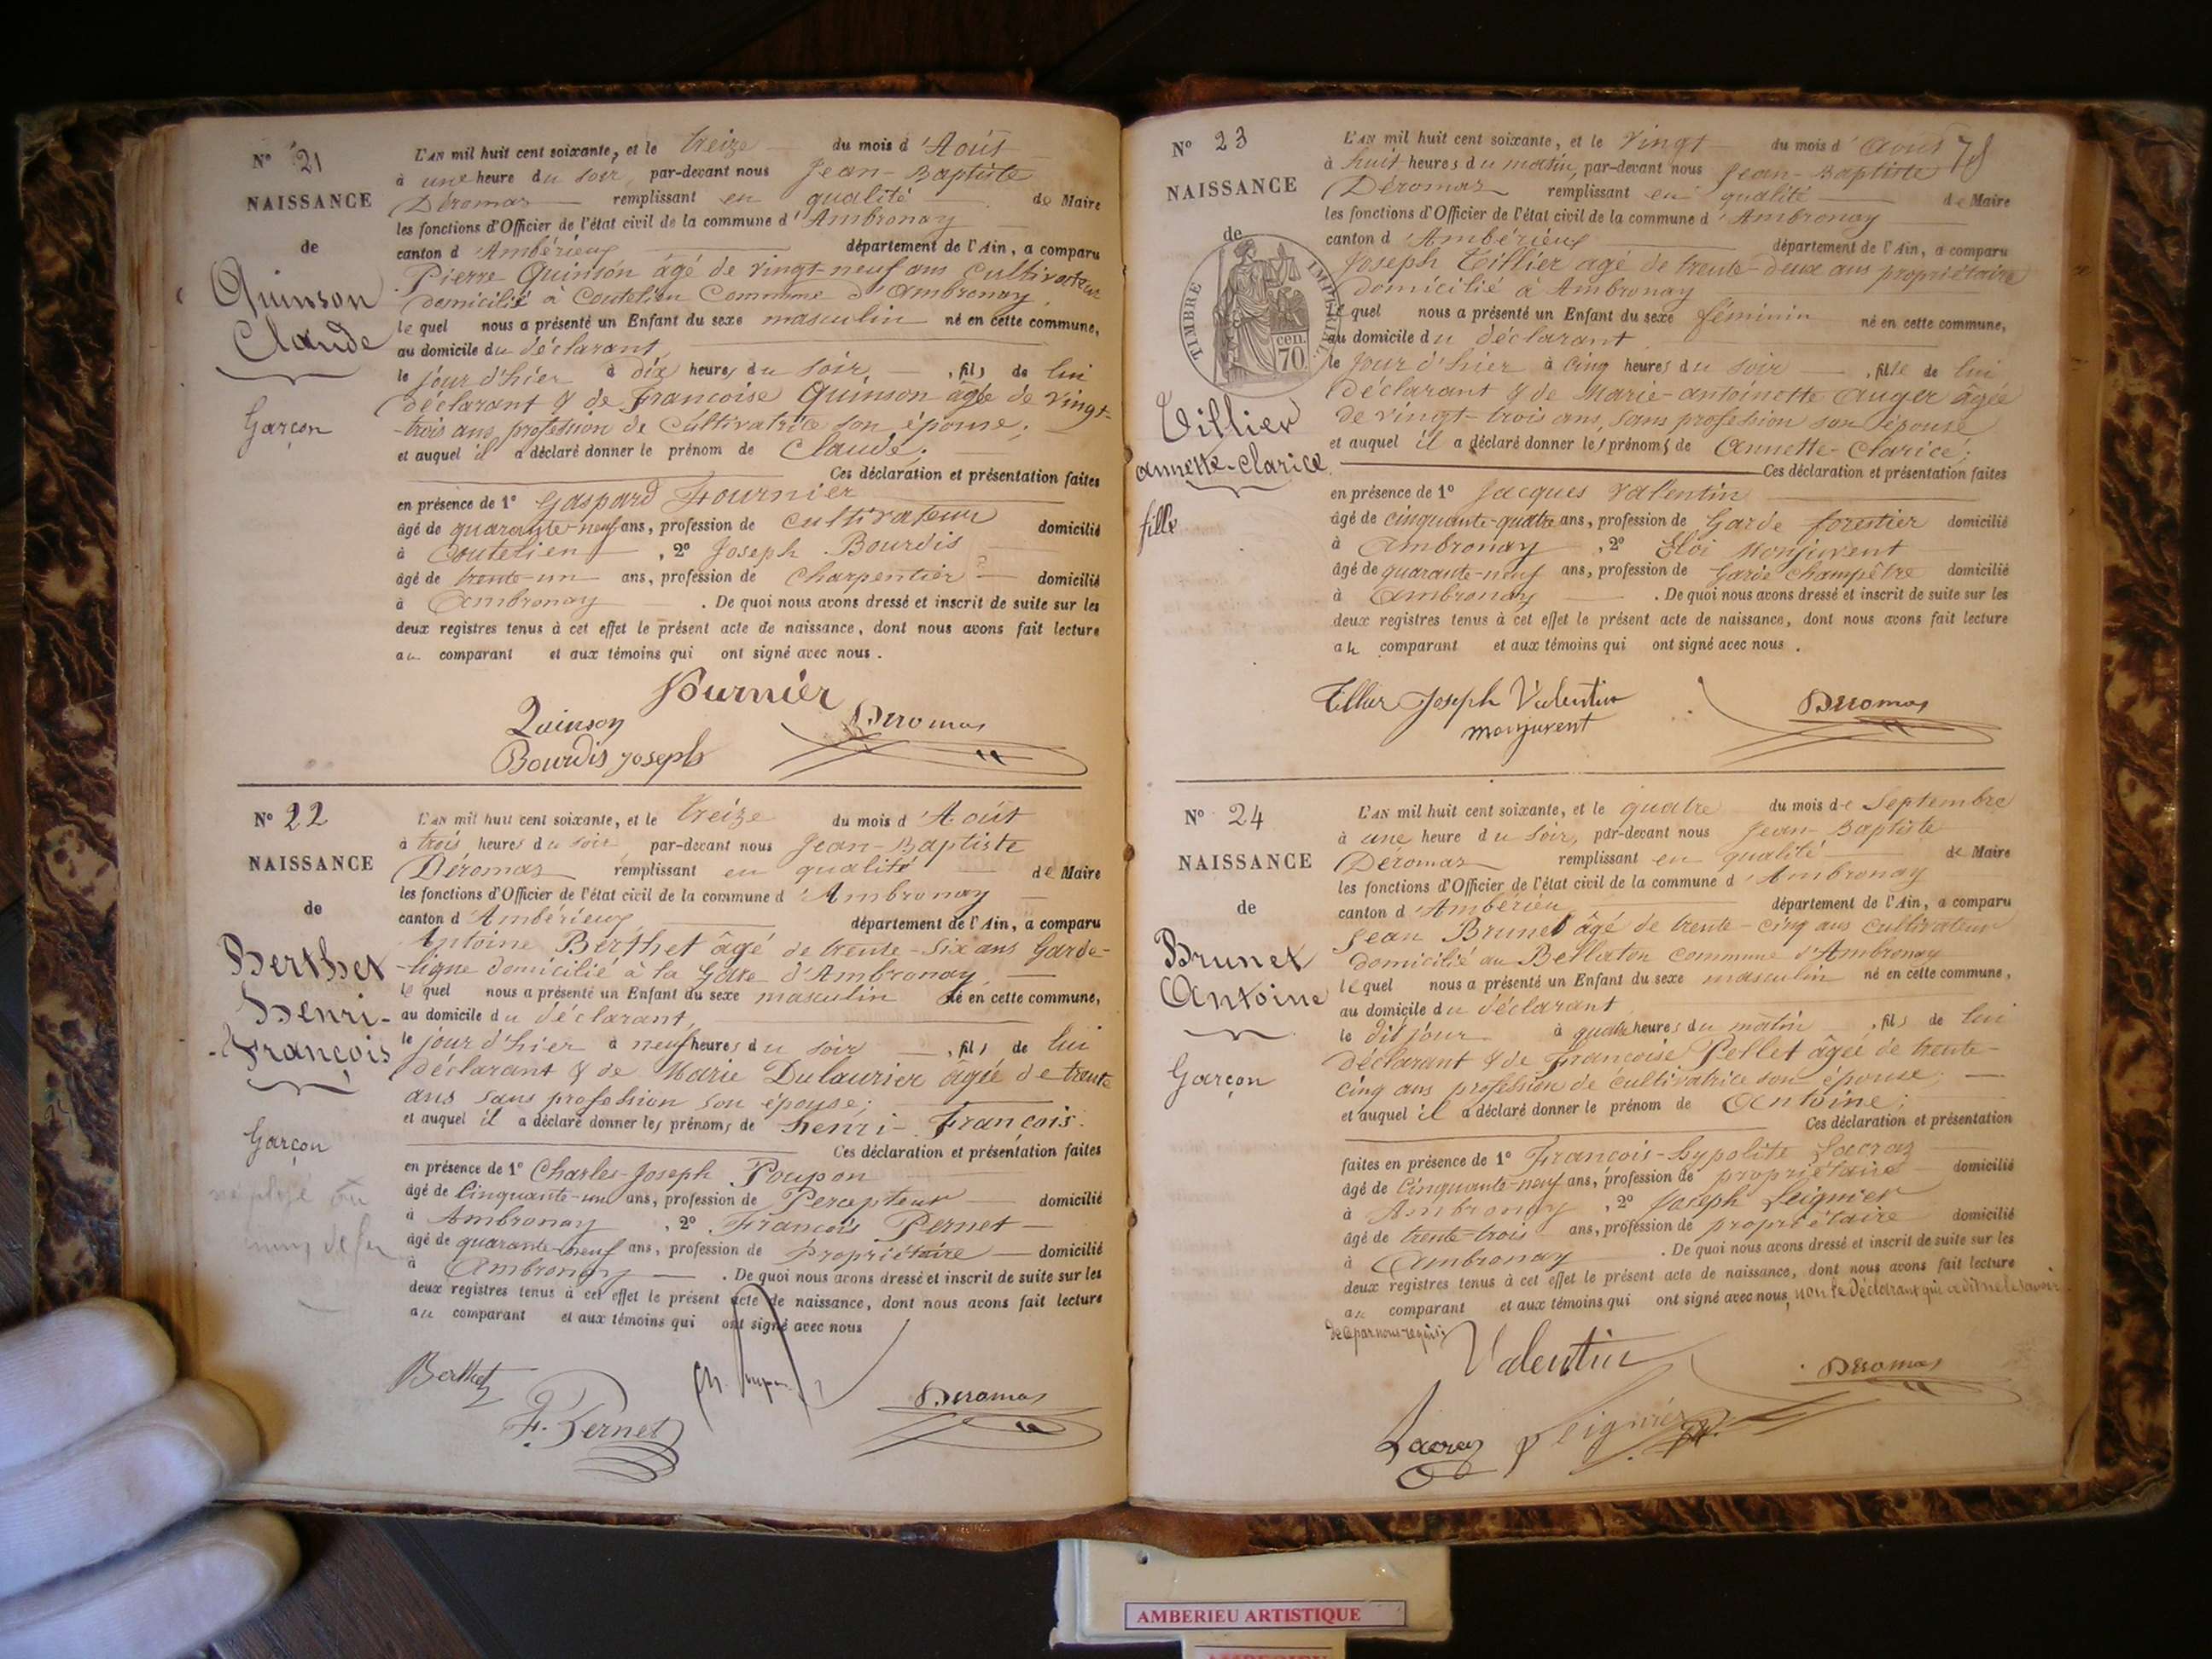 N° 21
NAISSANCE
de
Quinson
Claude
Garçon
L'AN mil huit cent soixante, et le treize du mois d'Août
à une heure du soir, par-devant nous Jean-Baptiste
Déromas remplissant en qualité de Maire
les fonctions d'Officier de l'état civil de la commune d'Ambronay
canton d'Ambérieux département de l'Ain, a comparu
Pierre Quinson âgé de vingt-neuf ans Cultivateur
domicilié à Coutelieu Commune d'Ambronay,
lequel nous a présenté un Enfant du sexe masculin né en cette commune,
au domicile du déclarant,
le jour d'hier à dix heures du soir, fils de lui
déclarant & de Francoise Quinson âgée de vingt-
-trois ans profession de Cultivatrice son épouse;
et auquel il a déclaré donner le prénom de Claude;
Ces déclaration et présentation faites
en présence de 1° Gaspard Fournier
âgé de quarante-neuf ans, profession de Cultivateur domicilié
à Coutelieu, 2° Joseph Bourdis
âgé de trente-un ans, profession de Charpentier domicilié
à Ambronay. De quoi nous avons dressé et inscrit de suite sur les
deux registres tenus à cet effet le présent acte de naissance, dont nous avons fait lecture
au comparant et aux témoins qui ont signé avec nous.
Fournier
Quinson Deromas
Bourdis Joseph
N° 22
NAISSANCE
de
Berthet
Henri-
-François
Garçon
L'AN mil huit cent soixante, et le treize du mois d'Août
à trois heures du soir par-devant nous Jean-Baptiste
Déromas remplissant en qualité de Maire
les fonctions d'Officier de l'état civil de la commune d'Ambronay
canton d'Ambérieux, département de l'Ain, a comparu
Antoine Berthet âgé de trente-six ans Garde-
-ligne domicilié à la Gare d'Ambronay,
lequel nous a présenté un Enfant du sexe masculin né en cette commune,
au domicile du déclarant,
le jour d'hier à neuf heures du soir, fils de lui
déclarant & de Marie Dulaurier âgée de trente
ans sans profession son épouse;
et auquel il a déclaré donner les prénoms de Henri-François.
Ces déclaration et présentation faites
en présence de 1° Charles-Joseph Poupon
âgé de Cinquante-un ans, profession de Percepteur domicilié
à Ambronay, 2° François Pernet
âgé de quarante-neuf ans, profession de Propriétaire domicilié
à Ambronay. De quoi nous avons dressé et inscrit de suite sur les
deux registres tenus à cet effet le présent acte de naissance, dont nous avons fait lecture
au comparant et aux témoins qui ont signé avec nous
Berthet
F. Pernet Deromas
N° 23
NAISSANCE
de
TIMBRE IMPERIAL
cen.
70.
Tillier
annette-clarice
fille
L'AN mil huit cent soixante, et le vingt du mois d'Aout 78
à huit heures du matin, par-devant nous Jean-Baptiste
Déromas remplissant en qualité de Maire
les fonctions d'Officier de l'état civil de la commune d'Ambronay
canton d'Ambérieux département de l'Ain, a comparu
Joseph Tillier agé de trente-deux ans propriétaire
domicilié à Ambronay
lequel nous a présenté un Enfant du sexe féminin né en cette commune,
au domicile du déclarant
le jour d'hier à cinq heures du soir, fille de lui
déclarant & de Marie-antoinette Auger âgée
de vingt-trois ans, sans profession son épouse
et auquel il a déclaré donner les prénoms de Annette-Clarice;
Ces déclaration et présentation faites
en présence de 1° Jacques Valentin
âgé de cinquante-quatre ans, profession de Garde forestier domicilié
à Ambronay, 2° Eloi Monjuvent
âgé de quarante-neuf ans, profession de Garde Champêtre domicilié
à Ambronay. De quoi nous avons dressé et inscrit de suite sur les
deux registres tenus à cet effet le présent acte de naissance, dont nous avons fait lecture
au comparant et aux témoins qui ont signé avec nous.
Tillier Joseph Valentin Deromas
monjuvent
N° 24
NAISSANCE
de
Brunet
Antoine
Garçon
L'AN mil huit cent soixante, et le quatre du mois de Septembre
à une heure du soir, par-devant nous Jean-Baptiste
Déromas remplissant en qualité de Maire
les fonctions d'Officier de l'état civil de la commune d'Ambronay
canton d'Ambérieu département de l'Ain, a comparu
Jean Brunet âgé de trente-cinq ans cultivateur
domicilié au Bellaton commune d'Ambronay
lequel nous a présenté un Enfant du sexe masculin né en cette commune,
au domicile du déclarant
le dit jour à quatre heures du matin, fils de lui
déclarant & de Francoise Pellet âgée de trente-
cinq ans profession de cultivatrice son épouse;
et auquel il a déclaré donner le prénom de Antoine;
Ces déclaration et présentation
faites en présence de 1° François-hypolite Lacraz
âgé de Cinquante-neuf ans, profession de propriétaire domicilié
à Ambronay, 2° Joseph Leignier
âgé de trente-trois ans, profession de propriétaire domicilié
à Ambronay. De quoi nous avons dressé et inscrit de suite sur les
deux registres tenus à cet effet le présent acte de naissance, dont nous avons fait lecture
au comparant et aux témoins qui ont signé avec nous, non le Déclarant qui a dit ne le savoir
de ce par nous requis;
Valentin Deromas
Lacraz Leignier
AMBERIEU ARTISTIQUE